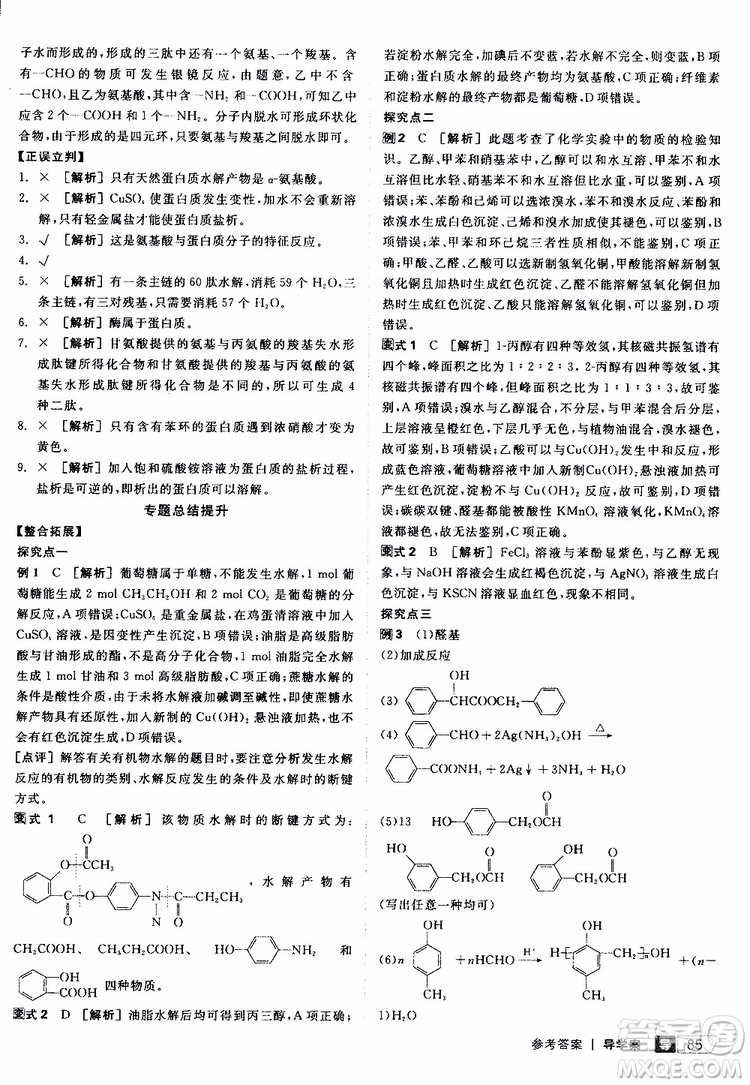 子水而形成的,形成的三肽中还有一个氨基、一个羧基。
有—CHO的物质可发生银镜反应,由题意,乙中不含
—CHO,且乙为氨基酸,含—NH₂和—COOH,因此乙中
含有2个—COOH和1个—NH₂。分子内脱水形成环状化
合物,由于生成的是四元环,只要氨基与羧基之间脱水即可。
【正误立判】
1. × [解析] 只有天然蛋白质水解产物是α-氨基酸。
2. × [解析] CuSO₄使蛋白质发生变性,加水不会重新溶
解。只有轻金属盐才能使蛋白质盐析。
3. √ [解析] 这是氨基酸与蛋白质分子的特征反应。
4. √
5. × [解析] 有一条主链的60肽水解,消耗59个H₂O,有三
条主链,有三对残基,只消耗57个H₂O。
6. × [解析] 酶属于蛋白质。
7. × [解析] 甘氨酸提供的氨基与丙氨酸的羧基失水形
成肽键所得化合物和甘氨酸提供的羧基与丙氨酸的氨
基失水形成肽键所得的化合物是不同的,所以生成4
种二肽。
8. × [解析] 只有含有苯环的蛋白质遇到浓硝酸才变为
黄色。
9. × [解析] 加入饱和硫酸铵溶液为蛋白质的盐析过程,
盐析是可逆的,即再加水可以溶解。
专题总结提升
【整合拓展】
探究点一
例1 C [解析] 葡萄糖属于单糖,不能发生水解,1 mol葡
萄糖能生成2 mol CH₃CH₂OH和2 mol CO₂,A项错误;
CuSO₄是重金属盐,在鸡蛋清溶液中加入
CuSO₄溶液,是因变性产生沉淀,B项错误;油脂是高级脂肪
酸与甘油形成的酯,不是高分子化合物,1 mol油脂完全水解
生成1 mol甘油和3 mol高级脂肪酸,C项正确;蔗糖水解的
条件是酸性介质,故水解后溶液应加碱调至碱性,蔗糖水
解产物具有还原性,加入新制的Cu(OH)₂悬浊液加热,也
会有红色沉淀生成,D项错误。
[点评] 解答有关有机物水解的题目时,要注意分析发生水解
反应的有机物的类别、水解发生的条件及水解时的断键
方式。
变式1 C [解析] 该物质水解时的断键方式为:
,水解产物有
CH₃COOH、CH₃CH₂COOH、HO—NH₂和
OH COOH 四种物质。
变式2 D [解析] 油脂水解后均可得到丙三醇,A项错误;
若淀粉水解完全,加碘后不变蓝,若水解不完全,则变蓝,B项
正确;蛋白质水解的最终产物为氨基酸,C项错误;纤维素
和淀粉水解的最终产物都是葡萄糖,D项错误。
探究点二
例2 C [解析] 此题考查了化学实验中的物质的检验知
识。乙醇、甲苯和硝基苯中,乙醇可以和水互溶、甲苯不和
水互溶但比水轻、硝基苯不和水互溶但比水重,可以用水鉴别,A项
错误;苯、苯酚和己烯可以选浓溴水,苯不和溴水反应、苯酚和
浓溴水生成白色沉淀、己烯和溴水加成使其褪色,可以鉴别,B项
错误;苯、甲苯和环己烷三者性质相似,不能鉴别,C项
正确;甲酸、乙醛、乙酸可以选新制氢氧化铜,甲酸能溶解新制氢
氧化铜但加热时生成红色沉淀、乙醛和新制氢氧化铜加
热时生成红色沉淀、乙酸能溶解氢氧化铜,可以鉴别,D项
错误。
变式1 C [解析] 1-丙醇有四种等效氢,其核磁共振氢谱有
四个峰,峰面积之比为1∶2∶2∶3,2-丙醇有三种等效氢,
其核磁共振谱有三个峰,峰面积之比为1∶1∶6,可以鉴别,
A项正确;溴水与乙醇混合,不分层,与甲苯混合后分层,
上层溶液变为橙红色,下层几乎无色,与植物油混合,溴水褪色,
可以鉴别,B项正确;乙酸与新制Cu(OH)₂悬浊液混合,形
成蓝色溶液,葡萄糖与新制Cu(OH)₂悬浊液加热可
产生红色沉淀,淀粉不与Cu(OH)₂悬浊液反应,C项错
误;含碳碳双键、醛基的有机物都能使酸性KMnO₄
溶液褪色,D项正确。
变式2 B [解析] FeCl₃溶液与苯酚显紫色,与乙醇无明显
现象,与NaOH溶液生成红褐色沉淀,与AgNO₃溶液生成白
色沉淀,与KSCN溶液显血红色,现象不同。
探究点三
例3 (1)醛基
(2)加成反应
(3) OH CHCOOCH₂
(4) CHO+2Ag(NH₃)₂OH △
COONH₄+2Ag↓+3NH₃+H₂O
(5)13 HO CH₂OCH O
HO CH₂OCH O OH CH₂OCH O
(写出任意一种均可)
(6)n OH CH₃ +nHCHO H⁺ H OH CH₂ n OH CH₃ +(n-
1)H₂O
参考答案 | 导学案 导 85